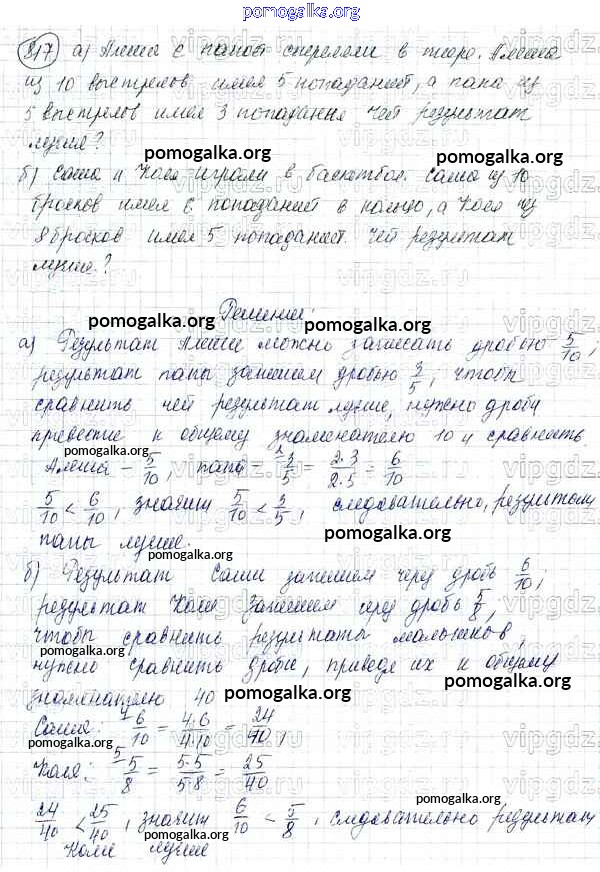 pomogalka.org
817 а) Алеша с папой стреляли в тире. Алеша
из 10 выстрелов имел 5 попаданий, а папа из
5 выстрелов имел 3 попадания. Чей результат
лучше?
pomogalka.org pomogalka.org
б) Саша и Коля играли в баскетбол. Саша из 10
бросков имел 6 попаданий в кольцо, а Коля из
8 бросков имел 5 попаданий. Чей результат
лучше?
Решение:
pomogalka.org pomogalka.org
а) Результат Алеши можно записать дробью 5/10;
результат папы запишем дробью 3/5, чтобы
сравнить чей результат лучше, нужно дроби
привести к общему знаменателю 10 и сравнить
pomogalka.org pomogalka.org
Алеша – 5/10, папа – 2 3/5 = 2·3/2·5 = 6/10
5/10 < 6/10, значит 5/10 < 3/5, следовательно, результат
папы лучше.
pomogalka.org pomogalka.org
б) Результат Саши запишем через дробь 6/10;
результат Коли запишем через дробь 5/8,
чтобы сравнить результаты мальчиков,
нужно сравнить дроби, приведя их к общему
pomogalka.org pomogalka.org
знаменателю 40
pomogalka.org
Саша: 4 6/10 = 4·6/4·10 = 24/40,
pomogalka.org pomogalka.org
Коля: 5 5/8 = 5·5/5·8 = 25/40
pomogalka.org
24/40 < 25/40, значит 6/10 < 5/8, следовательно результат
pomogalka.org pomogalka.org
Коли лучше